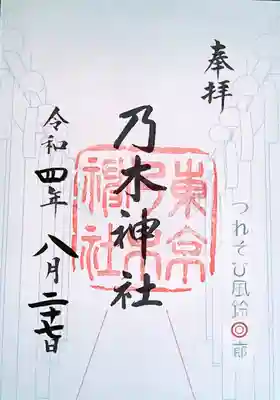 奉拝
つれそひ風鈴回廊
乃木神社
東京乃木神社
令和四年八月二十七日